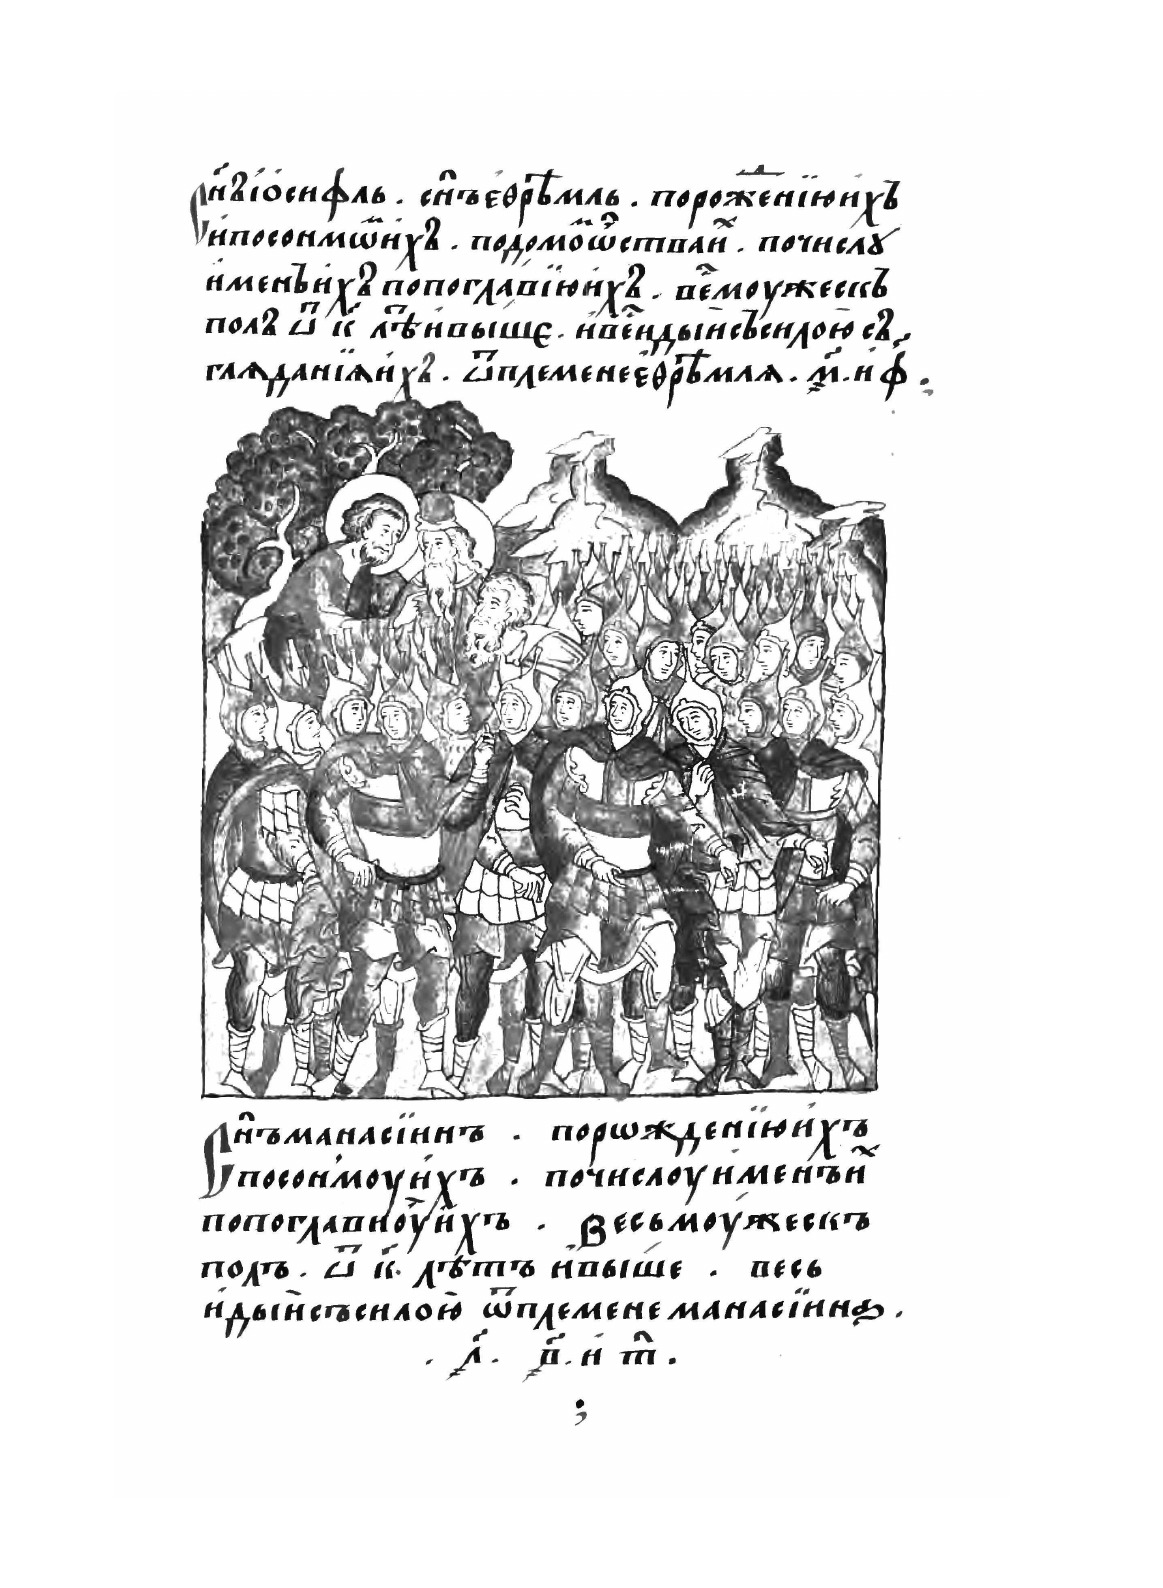 Сн҃ъ іосифль . сн҃ъ ефрѣмль . порожⷣенїю ихъ
и посонмѡⷨ ихъ . подомоⷨ ѿествап иⷯ . почислꙋ
именъ ихъ попоглавїю ихъ . веⷭ моужескъ
полъ ѿ к҃ лѣⷮ ивыше . ивеⷭ идыи съсилою съ
глѧданїѧ ихъ . ѿплемене ефрѣмлѧ . ҂м҃ . и ф҃ .
Сн҃ъ манасїинъ . порѡжденїю ихъ
посонмоу ихъ . почислоу именъ иⷯ
попоглавиоу ихъ . Весь моужескъ
полъ . ѿ к҃ . лѣтъ ивыше . весь
идыи съсилою ѿплемене манасїинѧ .
. ҂л҃ . ҂в҃ . и т҃ .
;